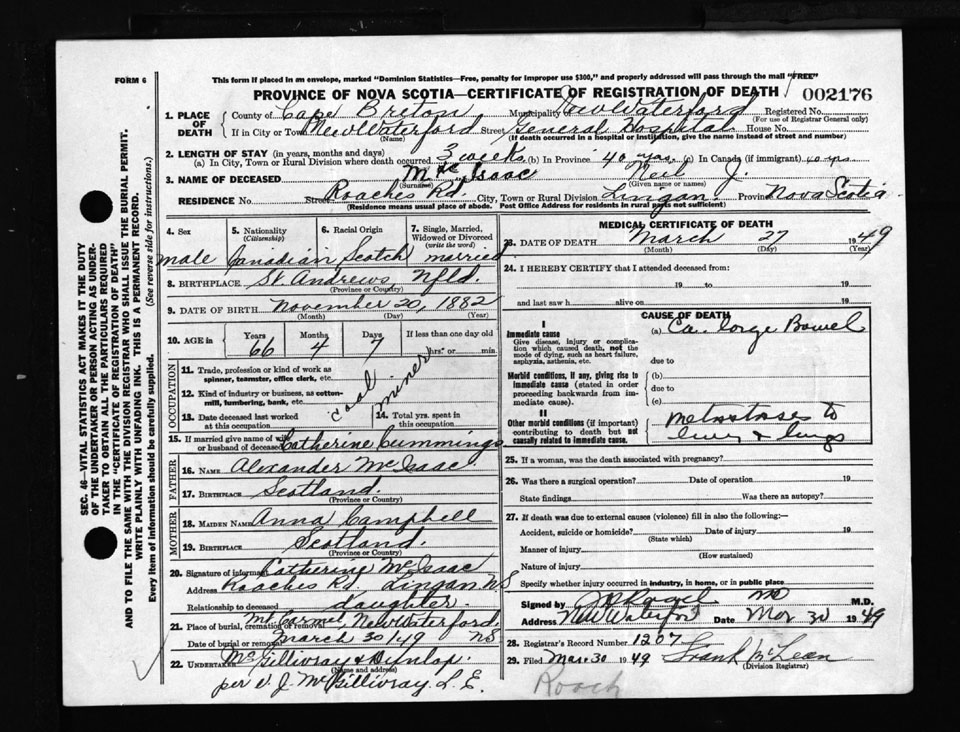 FORM 6
This form if placed in an envelope, marked "Dominion Statistics—Free, penalty for improper use $300," and properly addressed will pass through the mail "FREE"
PROVINCE OF NOVA SCOTIA—CERTIFICATE OF REGISTRATION OF DEATH
002176
SEC. 46—VITAL STATISTICS ACT MAKES IT THE DUTY
OF THE UNDERTAKER OR PERSON ACTING AS UNDER-
TAKER TO OBTAIN ALL THE PARTICULARS REQUIRED
IN THE "CERTIFICATE OF REGISTRATION OF DEATH"
AND TO FILE THE SAME WITH THE DIVISION REGISTRAR WHO SHALL ISSUE THE BURIAL PERMIT.
WRITE PLAINLY WITH UNFADING INK. THIS IS A PERMANENT RECORD.
Every item of information should be carefully supplied. (See reverse side for instructions.)
1. PLACE OF DEATH
County of Cape Breton Municipality of New Waterford Registered No.
(For use of Registrar General only)
If in City or Town New Waterford Street General Hospital House No.
(Name) (If death occurred in a hospital or institution, give the name instead of street and number)
2. LENGTH OF STAY (in years, months and days)
(a) In City, Town or Rural Division where death occurred 3 weeks (b) In Province 40 yrs. (c) In Canada (if immigrant) 40 yrs
3. NAME OF DECEASED McIsaac Neil J.
(Surname) (Given name or names)
RESIDENCE No. Street Roaches Rd. City, Town or Rural Division Lingan. Province Nova Scotia.
(Residence means usual place of abode. Post Office Address for residents in rural parts not sufficient)
4. Sex 5. Nationality (Citizenship) 6. Racial Origin 7. Single, Married, Widowed or Divorced (write the word)
male Canadian Scotch married
8. BIRTHPLACE St. Andrews, Nfld.
(Province or Country)
9. DATE OF BIRTH November 20, 1882
(Month) (Day) (Year)
10. AGE in Years Months Days If less than one day old
66 4 7 hrs. or min.
OCCUPATION
11. Trade, profession or kind of work as
spinner, teamster, office clerk, etc.
12. Kind of industry or business, as cotton-
mill, lumbering, bank, etc.
coal miner
13. Date deceased last worked
at this occupation
14. Total yrs. spent in
this occupation
15. If married give name of wife
or husband of deceased Catherine Cummings
FATHER
16. NAME Alexander McIsaac
17. BIRTHPLACE Scotland
(Province or Country)
MOTHER
18. MAIDEN NAME Anna Campbell
19. BIRTHPLACE Scotland.
(Province or Country)
20. Signature of informant Catherine McIsaac
Address Roaches Rd. Lingan, NS
Relationship to deceased daughter.
21. Place of burial, cremation or removal Mt. Carmel, New Waterford.
Date of burial or removal March 30/49 NS
22. UNDERTAKER McGillivray & Dunlop.
(Name and address)
per J. McGillivray L.E.
MEDICAL CERTIFICATE OF DEATH
23. DATE OF DEATH March 27 1949
(Month) (Day) (Year)
24. I HEREBY CERTIFY that I attended deceased from:
19 to 19
and last saw h alive on 19
CAUSE OF DEATH
I
Immediate cause
Give disease, injury or complica-
tion which caused death, not the
mode of dying, such as heart failure,
asphyxia, asthenia, etc.
(a) Ca. large Bowel
due to
Morbid conditions, if any, giving rise to
immediate cause (stated in order
proceeding backwards from im-
mediate cause).
(b)
due to
(c)
II
Other morbid conditions (if important)
contributing to death but not
causally related to immediate cause.
Metastases to
liver & lungs
25. If a woman, was the death associated with pregnancy?
26. Was there a surgical operation? Date of operation 19
State findings Was there an autopsy?
27. If death was due to external causes (violence) fill in also the following:—
Accident, suicide or homicide? Date of injury 19
(State which)
Manner of injury
(How sustained)
Nature of injury
Specify whether injury occurred in industry, in home, or in public place
Signed by MD M.D.
Address New Waterford Date Mar 30 1949
28. Registrar's Record Number 1207
29. Filed Mar. 30 1949 Frank McLean
(Division Registrar)
Roach